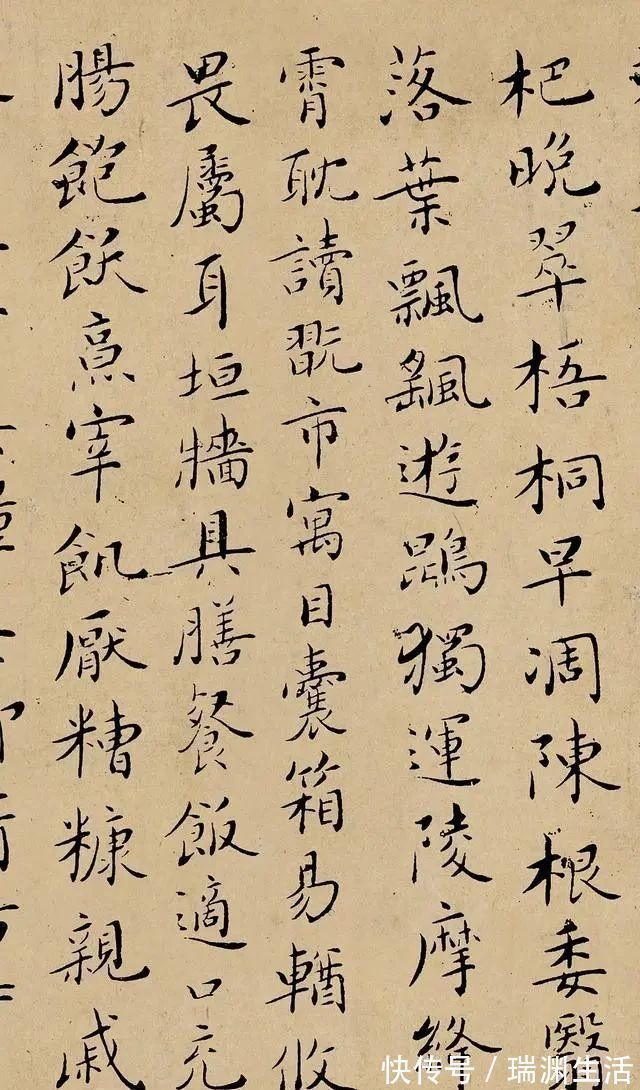 杷晚翠梧桐早凋陳根委翳
落葉飄颻遊鵾獨運陵摩絳
霄耽讀翫市寓目囊箱易輶攸
畏屬耳垣牆具膳餐飯適口充
腸飽飫烹宰飢厭糟糠親戚
快传号 / 瑞渊生活